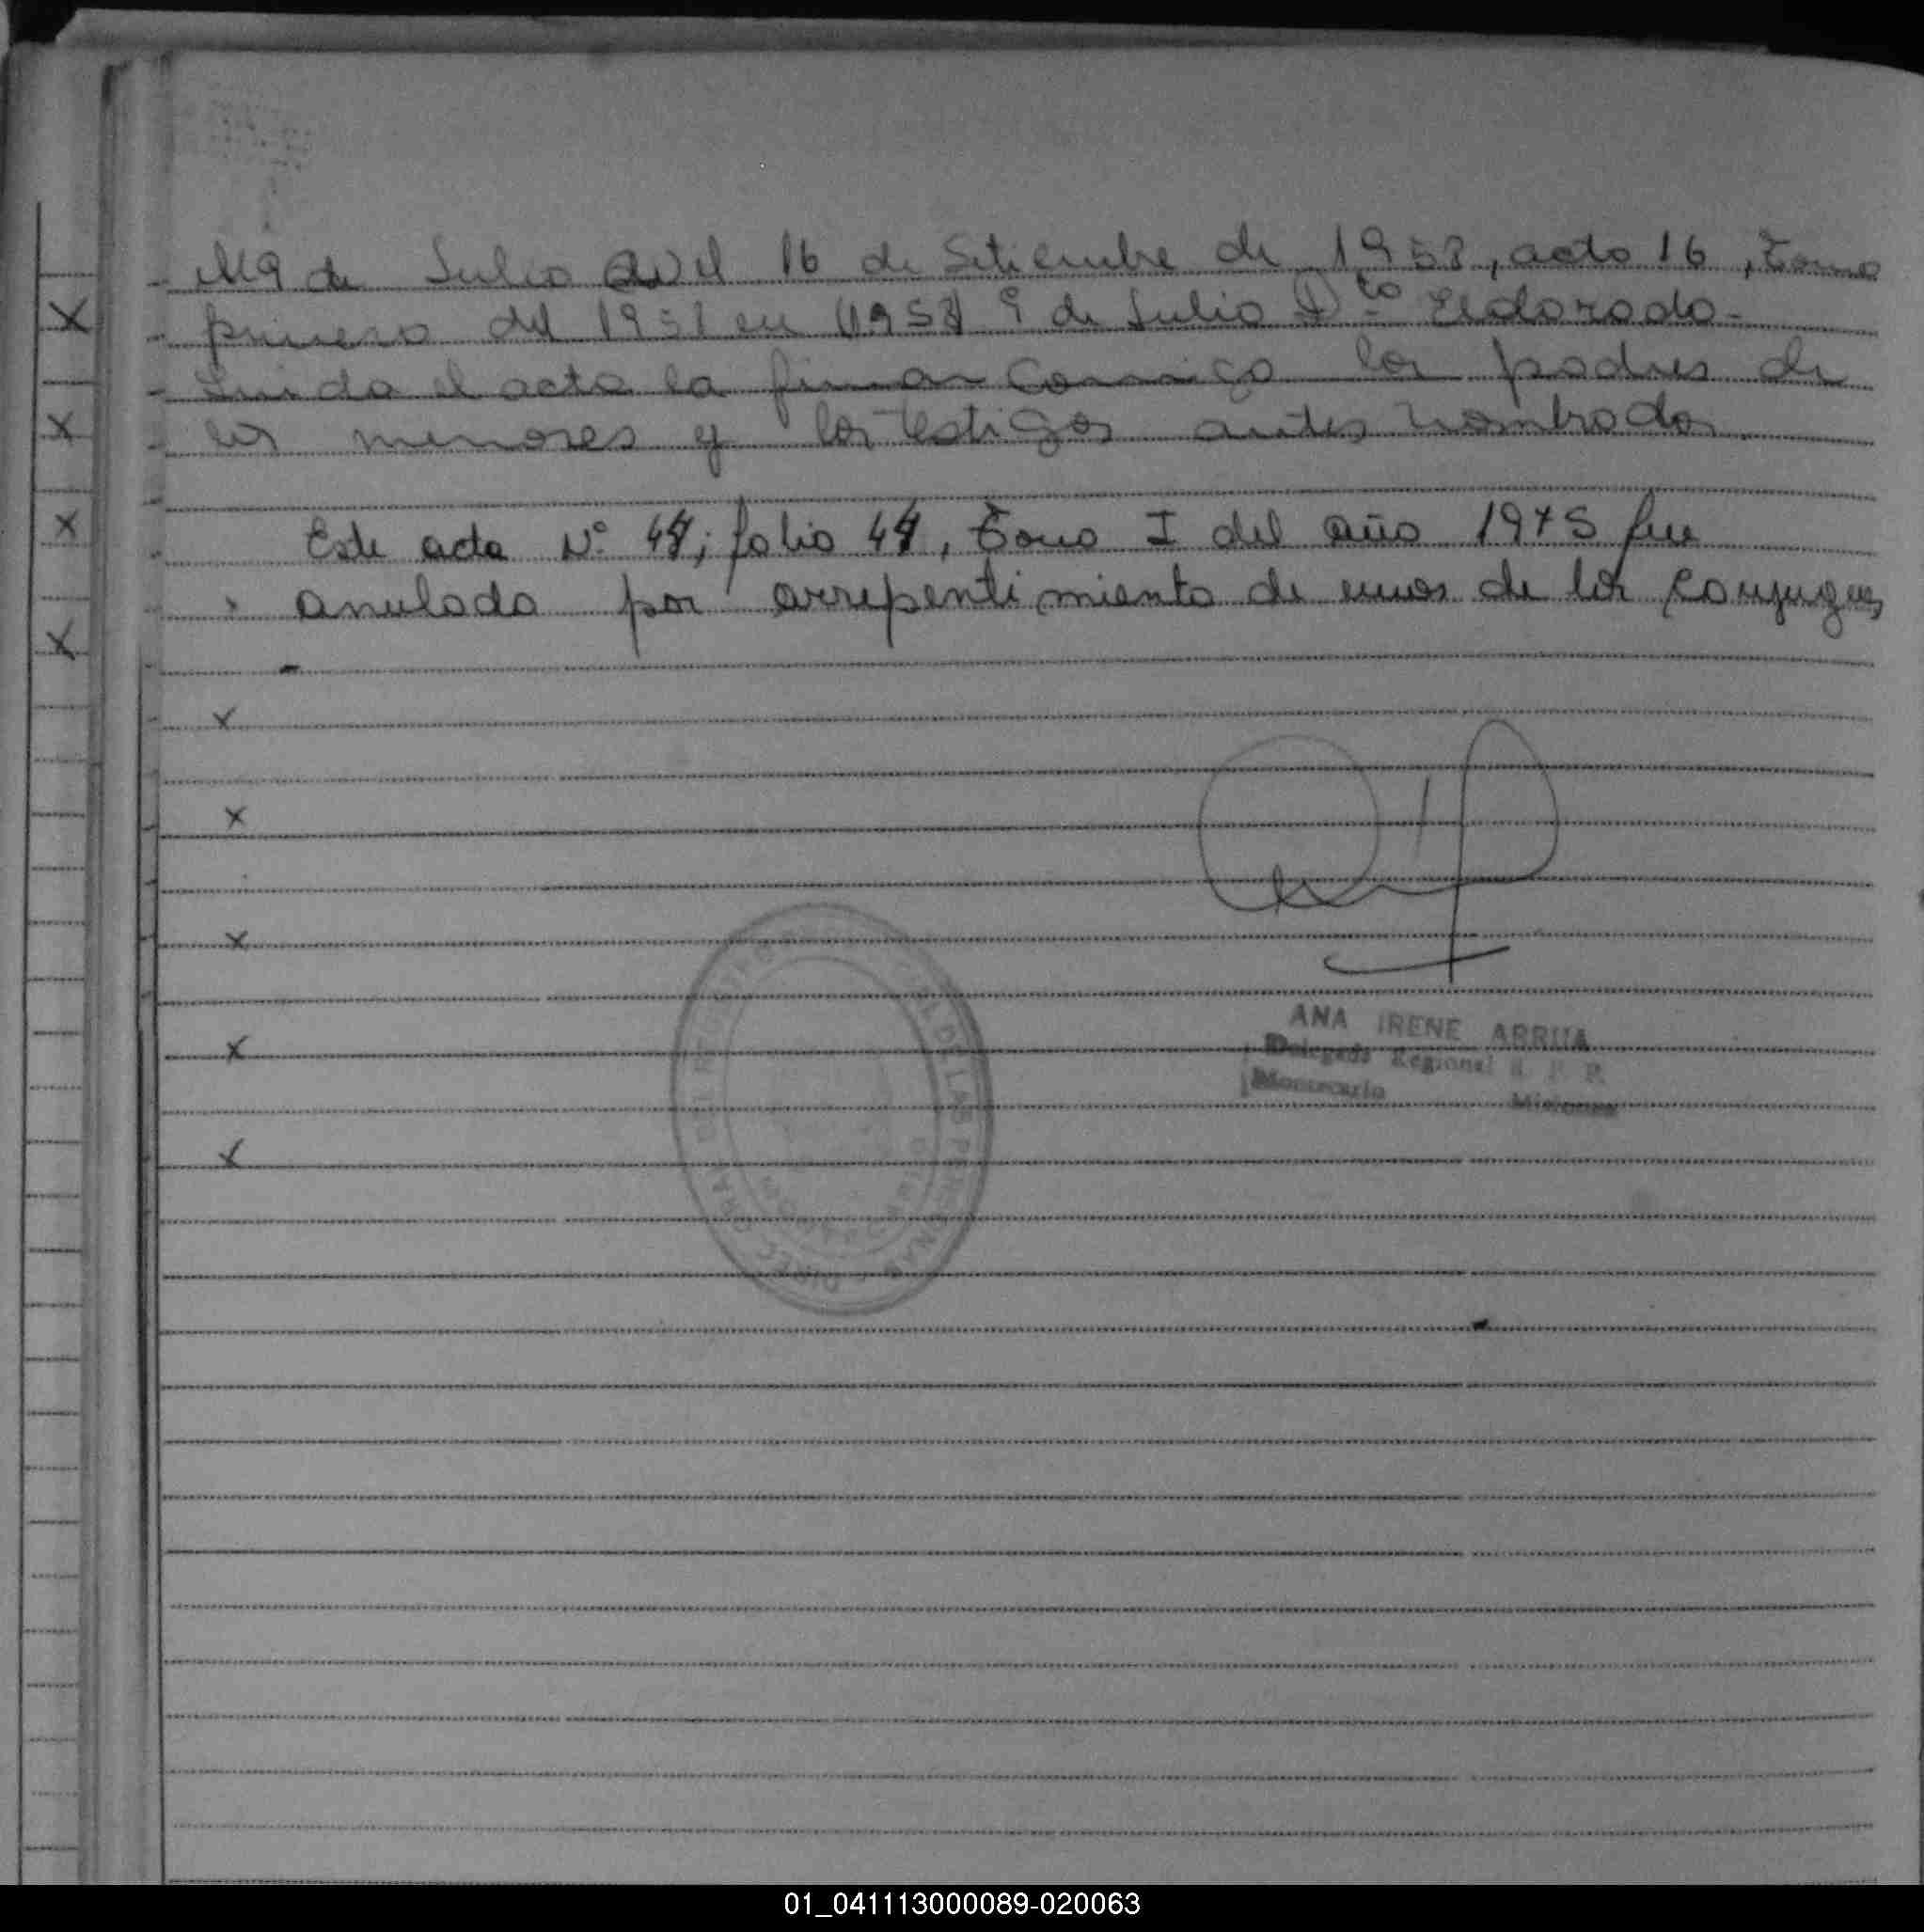 9 de Julio el 16 de Setiembre de 1958, acta 16, Tomo
primero del 1958 en (1958) 9 de Julio Dto Eldorado.-
Leida el acta la firman conmigo los padres de
los menores y los testigos antes nombrados
Este acta Nº 44; folio 44, Tomo I del año 1975 fue
anulada por arrepentimiento de unos de los conyugues
-
ANA IRENE ARRUA
Delegada Regional R. P. P.
Montecarlo Misiones
DE LAS PERSONAS
01_041113000089-020063